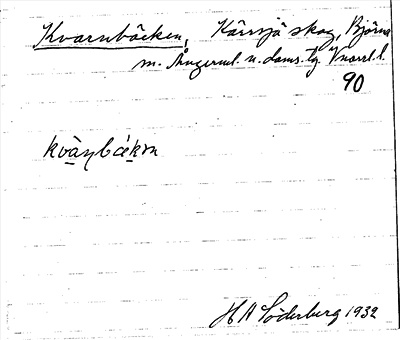 Kvarnbäcken, Kärrsjö skog, Björna
m. Ångerml. n. doms. tg. Vnorrl. l.
90
kvàɳbǽkɷn
H A Söderberg 1932